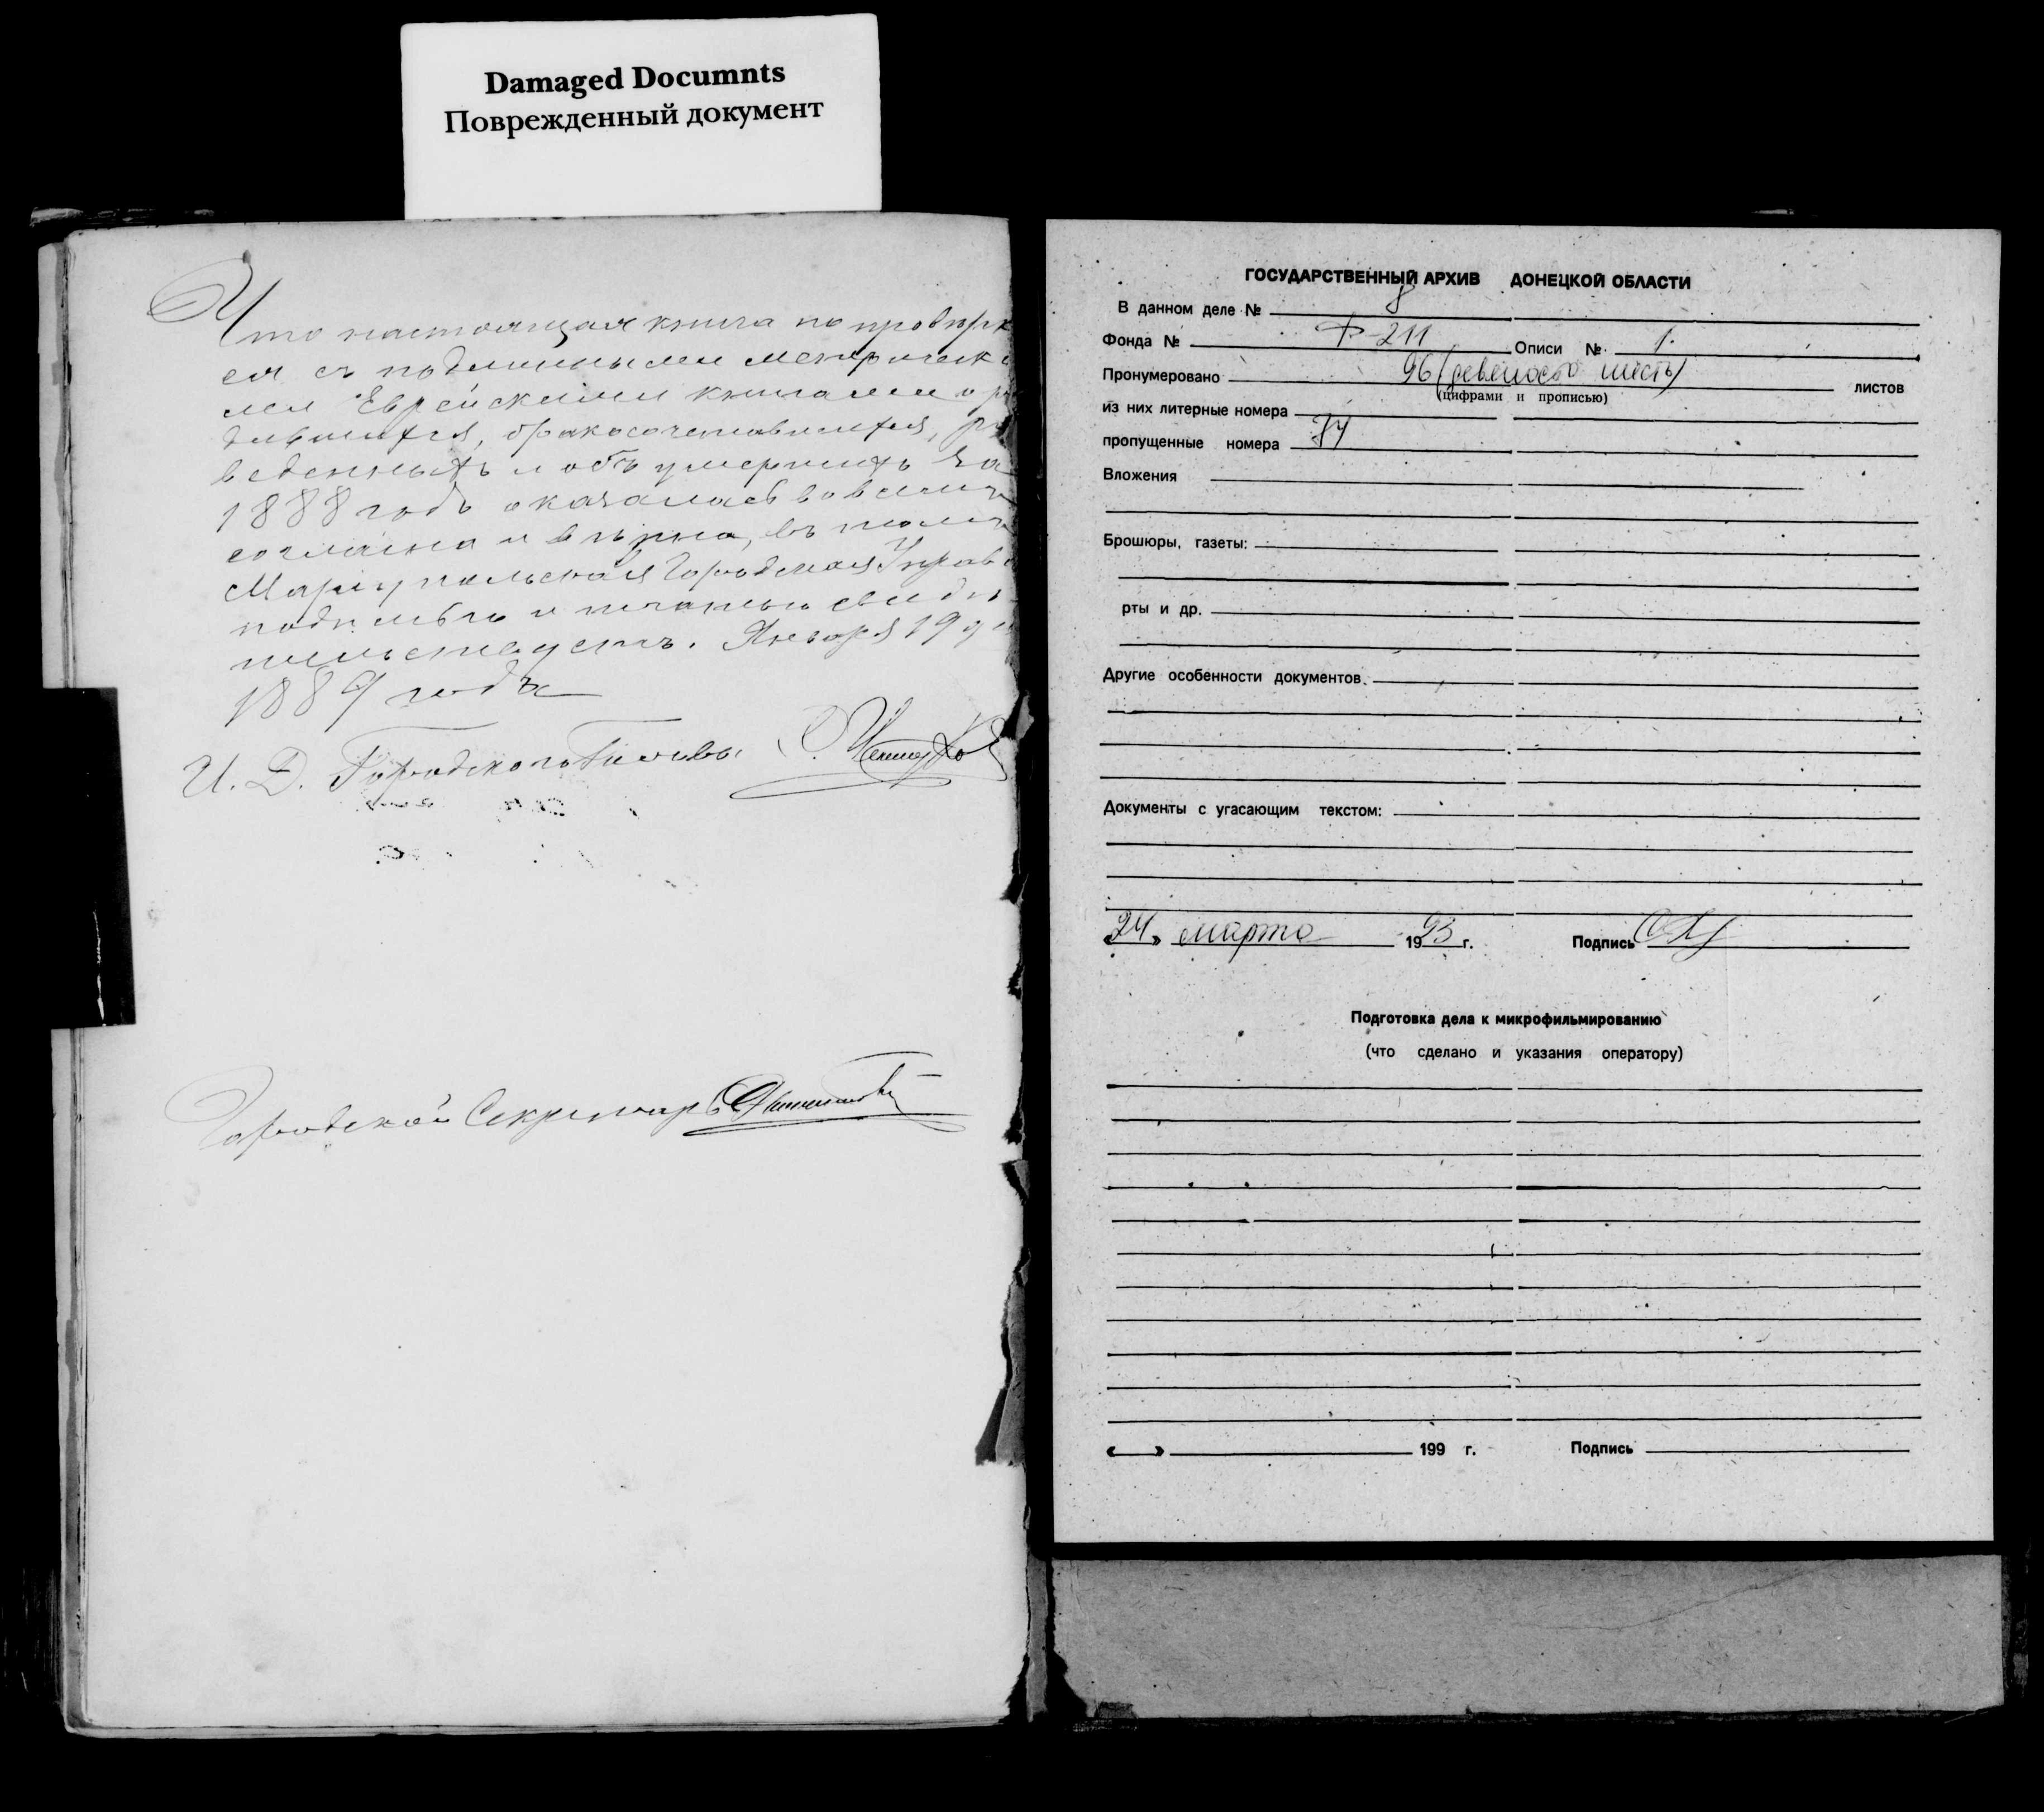 Damaged Documnts
Поврежденный документ
Что настоящая книга по провѣрк
ея съ подлинными метрическ
ми Еврейскими книгами о ро
дившихся, бракосочетавшихся, ра
зведенныхъ и объ умершихъ за
1888 годъ оказалась во всемъ
согласна и вѣрна, въ томъ
Мариупольская Городская Управа
подписью и печатью свидѣ
тельствуетъ. Января 19 дня
1889 года
И. Д. Городского Головы
Городской Секретарь
ГОСУДАРСТВЕННЫЙ АРХИВ ДОНЕЦКОЙ ОБЛАСТИ
В данном деле № 8
Фонда № Ф-211 Описи № 1.
Пронумеровано 96 (девяносто шесть) листов
(цифрами и прописью)
из них литерные номера
пропущенные номера 74
Вложения
Брошюры, газеты:
рты и др.
Другие особенности документов.
Документы с угасающим текстом:
«24» марта 1993 г. Подпись
Подготовка дела к микрофильмированию
(что сделано и указания оператору)
« » 199 г. Подпись